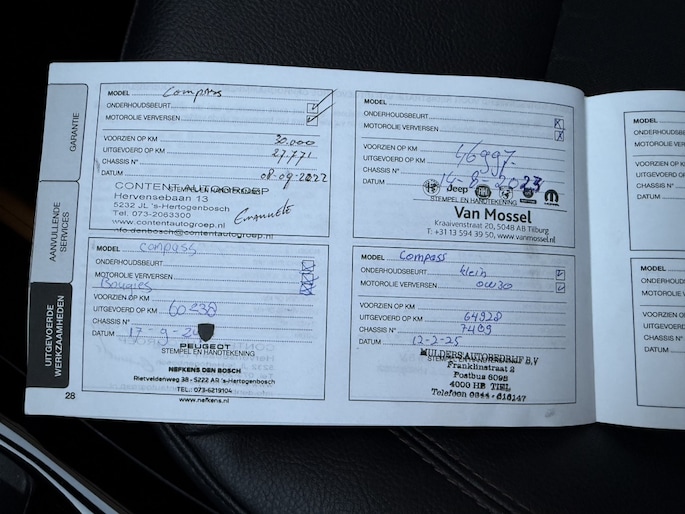 GARANTIE
AANVULLENDE SERVICES
UITGEVOERDE WERKZAAMHEDEN
28
MODEL Compass
ONDERHOUDSBEURT
MOTOROLIE VERVERSEN
VOORZIEN OP KM 30.000
UITGEVOERD OP KM 27.771
CHASSIS N°
DATUM 08-09-2022
CONTENT AUTOGROEP
STEMPEL EN HANDTEKENING
Hervensebaan 13
5232 JL 's-Hertogenbosch
Tel. 073-2063300
www.contentautogroep.nl
nfo.denbosch@contentautogroep.nl
MODEL
ONDERHOUDSBEURT
MOTOROLIE VERVERSEN
VOORZIEN OP KM
UITGEVOERD OP KM 46997
CHASSIS N°
DATUM 14-8-2023
Jeep
STEMPEL EN HANDTEKENING
Van Mossel
Kraaivenstraat 20, 5048 AB Tilburg
T: +31 13 594 39 50, www.vanmossel.nl
MODEL compass
ONDERHOUDSBEURT
MOTOROLIE VERVERSEN
Bougies
VOORZIEN OP KM
UITGEVOERD OP KM 60238
CHASSIS N°
DATUM 17-9-24
PEUGEOT
STEMPEL EN HANDTEKENING
NEFKENS DEN BOSCH
Rietveldenweg 38 - 5222 AR 's-Hertogenbosch
TEL.: 073-6219104
www.nefkens.nl
MODEL Compass
ONDERHOUDSBEURT klein
MOTOROLIE VERVERSEN 0W30
VOORZIEN OP KM
UITGEVOERD OP KM 64928
CHASSIS N° 7409
DATUM 12-2-25
MULDERS AUTOBEDRIJF B.V
STEMPEL EN HANDTEKENING
Franklinstraat 2
Postbus 6098
4000 HB TIEL
Telefoon 0344 - 616147
MODEL
ONDERHOUDSBE
MOTOROLIE VER
VOORZIEN OP K
UITGEVOERD O
CHASSIS N°
DATUM
MODEL
ONDERHOUDSB
MOTOROLIE VE
VOORZIEN OP
UITGEVOERD O
CHASSIS N°
DATUM